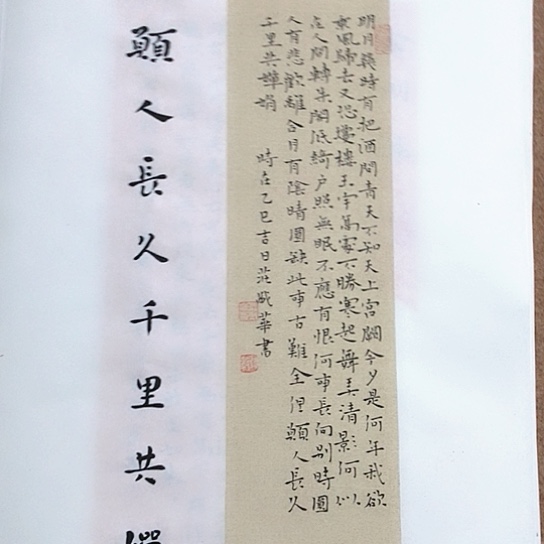 明月幾時有把酒問青天不知天上宮闕今夕是何年我欲
乘風歸去又恐瓊樓玉宇高處不勝寒起舞弄清影何似
在人間轉朱閣低綺户照無眠不應有恨何事長向别時圓
人有悲歡離合月有陰晴圓缺此事古難全但願人長久
千里共嬋娟 時在乙巳吉日莊華書
願人長久千里共